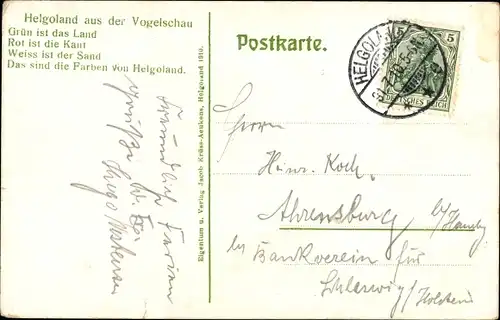 Helgoland aus der Vogelschau
Grün ist das Land
Rot ist die Kant
Weiss ist der Sand
Das sind die Farben von Helgoland.
Postkarte.
HELGOLAND
5 5
DEUTSCHES REICH
Eigentum u. Verlag Jacob Krüss-Aeukens, Helgoland 1910.
Freundliche Ferien
Grüße
Hugo
Herrn
Heinr. Koch.
Ahrensburg b/Hamby
by Bankverein für
Schleswig/Holstein